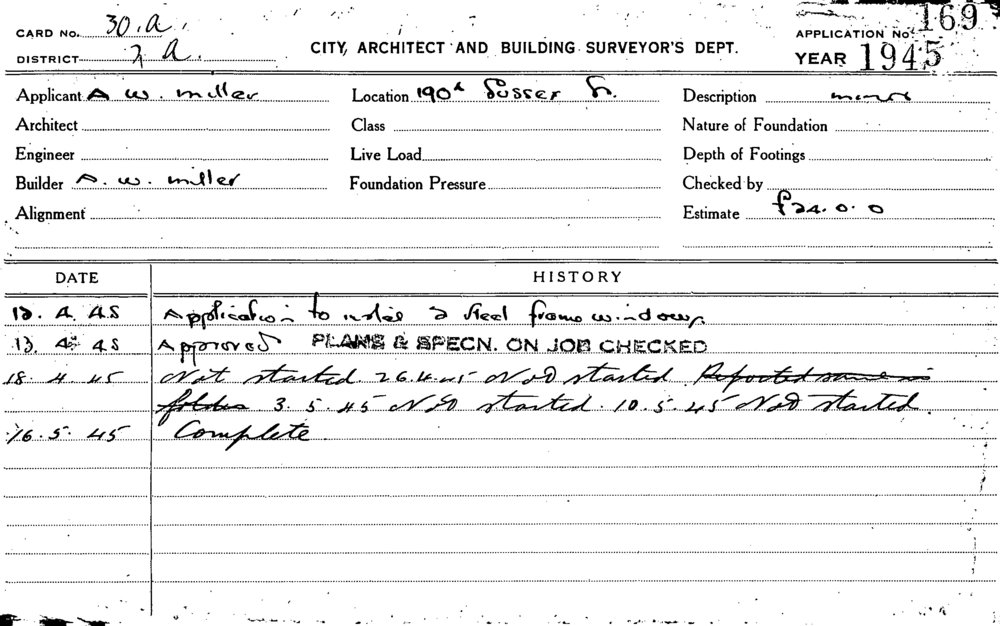 CARD No. 30.A
DISTRICT 2 A.
CITY, ARCHITECT AND BUILDING SURVEYOR'S DEPT.
APPLICATION No. 169
YEAR 1945
Applicant A W. Miller
Location 190A Sussex St.
Description minor
Architect
Class
Nature of Foundation
Engineer
Live Load
Depth of Footings
Builder A. W. Miller
Foundation Pressure
Checked by
Alignment
Estimate £24.0.0
DATE HISTORY
13. 4. 45 Application to 2 steel frame windows.
13. 4. 45 Approved PLANS & SPECN. ON JOB CHECKED
18. 4. 45 Not started. 26.4.45 Not started. Reported same in
folder 3.5.45 Not started. 10.5.45 Not started.
16. 5. 45 Complete